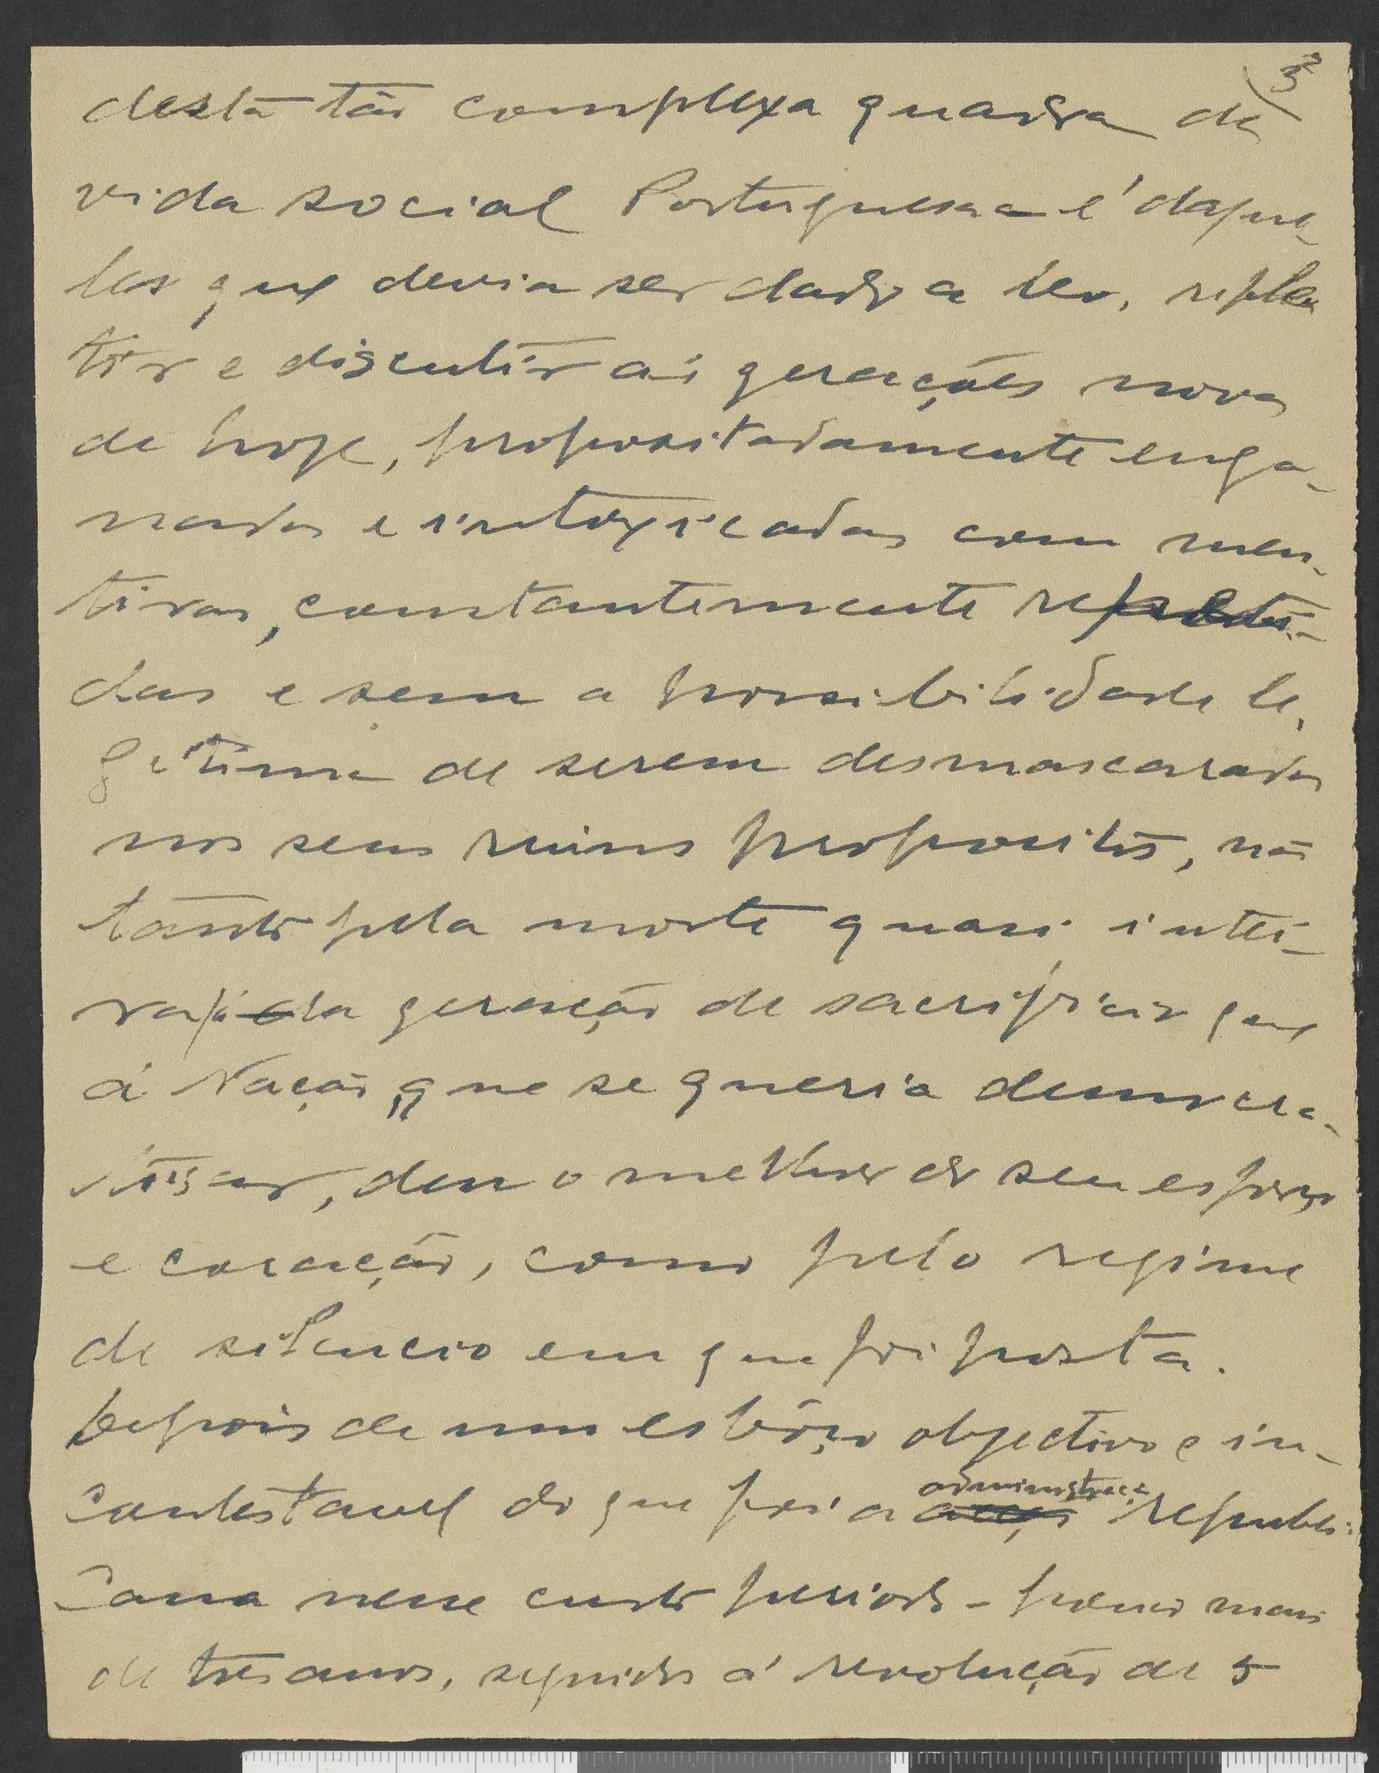 3
desta tão complexa quadra da
vida social Portuguesa – é daque-
les que devia ser dado a ler, reflec
tir e discutir ás gerações novas
de hoje, propositadamente enga-
nadas e intoxicadas com men-
tiras, constantemente repeti-
das e sem a possibilidade le-
gitima de serem desmascaradas
nos seus ruins propositos, não
tanto pela morte quasi intei-
ra da geração de sacrificio que
á Nação, que se queria democra-
tisar, deu o melhor do seu esforço
e coração, como pelo regime
de silencio em que foi posta.
Depois de um esbôço objectivo e in-
contestavel do que foi a administraçã
acção republi-
cana nesse curto periodo – pouco mais
de tres anos, seguidos á revolução de 5